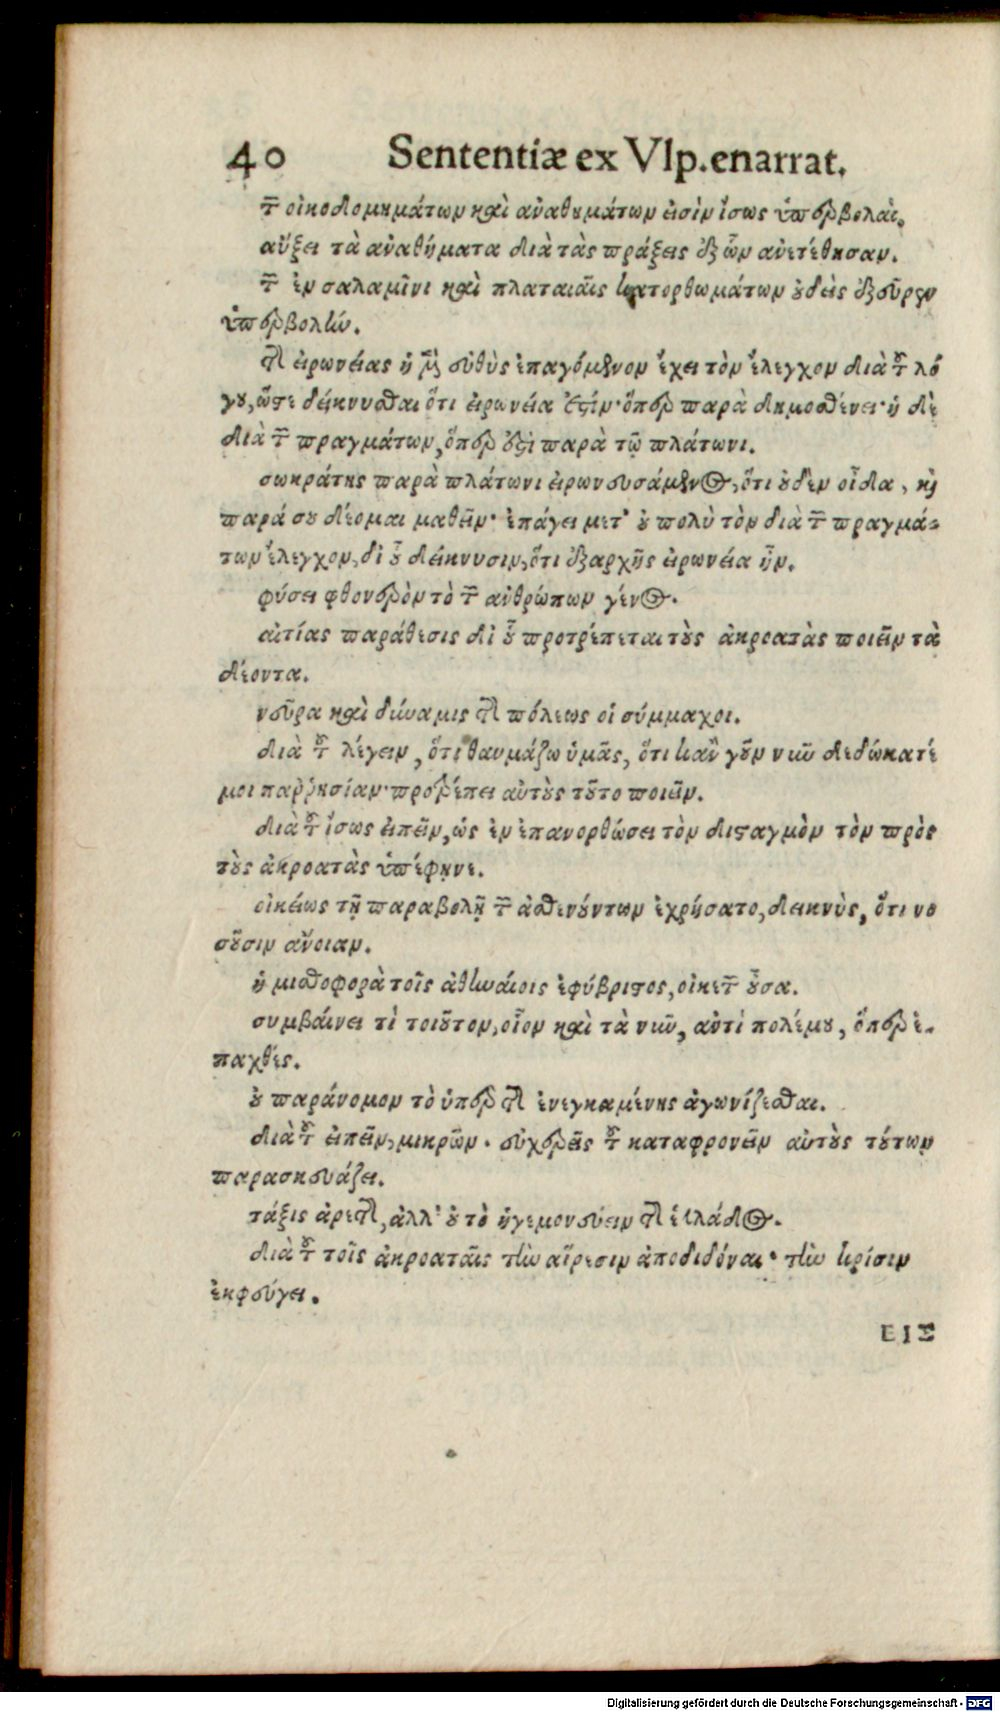 40 Sententiæ ex Vlp. enarrat.
τῶν οἰκοδομημάτων καὶ ἀναθημάτων εἰσὶν ἴσως ὑπερβολαί.
αὔξει τὰ ἀναθήματα διὰ τὰς πράξεις ἐξ ὧν ἀνετέθησαν.
τῶν ἐν σαλαμῖνι καὶ πλαταιαῖς κατορθωμάτων οὐδεὶς ἐξεῦρεν
ὑπερβολήν.
τῆς εἰρωνείας ἡ μὲν εὐθὺς ἐπαγόμενον ἔχει τὸν ἔλεγχον διὰ τοῦ λό
γου, ὥστε δείκνυσθαι ὅτι εἰρωνεία ἐστίν· ὅπερ παρὰ δημοσθένει· ἡ δὲ
διὰ τῶν πραγμάτων, ὅπερ ἐστὶ παρὰ τῷ πλάτωνι.
σωκράτης παρὰ πλάτωνι εἰρωνευσάμενος, ὅτι οὐδὲν οἶδα, καὶ
παρά σου δέομαι μαθεῖν· ἐπάγει μετ' οὐ πολὺ τὸν διὰ τῶν πραγμά-
των ἔλεγχον, δι' οὗ δείκνυσιν, ὅτι ἐξαρχῆς εἰρωνεία ἦν.
φύσει φθονερὸν τὸ τῶν ἀνθρώπων γένος.
αἰτίας παράθεσις δι' οὗ προτρέπεται τοὺς ἀκροατὰς ποιεῖν τὰ
δέοντα.
νεῦρα καὶ δύναμις τῆς πόλεως οἱ σύμμαχοι.
διὰ τοῦ λέγειν, ὅτι θαυμάζω ὑμᾶς, ὅτι κἂν γοῦν νῦν δεδώκατέ
μοι παῤῥησίαν· προτρέπει αὐτοὺς τοῦτο ποιεῖν.
διὰ τοῦ ἴσως εἰπεῖν, ὡς ἐν ἐπανορθώσει τὸν δισταγμὸν τὸν πρὸς
τοὺς ἀκροατὰς ὑπέφηνε.
οἰκείως τῇ παραβολῇ τῶν ἀσθενούντων ἐχρήσατο, δεικνὺς, ὅτι νο
σοῦσιν ἄνοιαν.
ἡ μισθοφορὰ τοῖς ἀθηναίοις ἐφύβριστος, οἰκετῶν οὖσα.
συμβαίνει τὶ τοιοῦτον, οἷον καὶ τὰ νῦν, ἀντὶ πολέμου, ὅπερ ἐ-
παχθές.
οὐ παράνομον τὸ ὑπὲρ τῆς ἐνεγκαμένης ἀγωνίζεσθαι.
διὰ τοῦ εἰπεῖν, μικρῶν. εὐχερεῖς τοῦ καταφρονεῖν αὐτοὺς τούτων
παρασκευάζει.
τάξις ἀρετῆς, ἀλλ' οὐ τὸ ἡγεμονεύειν τῆς ἑλλάδος.
διὰ τοῦ τοῖς ἀκροαταῖς τὴν αἵρεσιν ἀποδιδόναι· τὴν κρίσιν
ἐκφεύγει.
ΕΙΣ
Digitalisierung gefördert durch die Deutsche Forschungsgemeinschaft - DFG